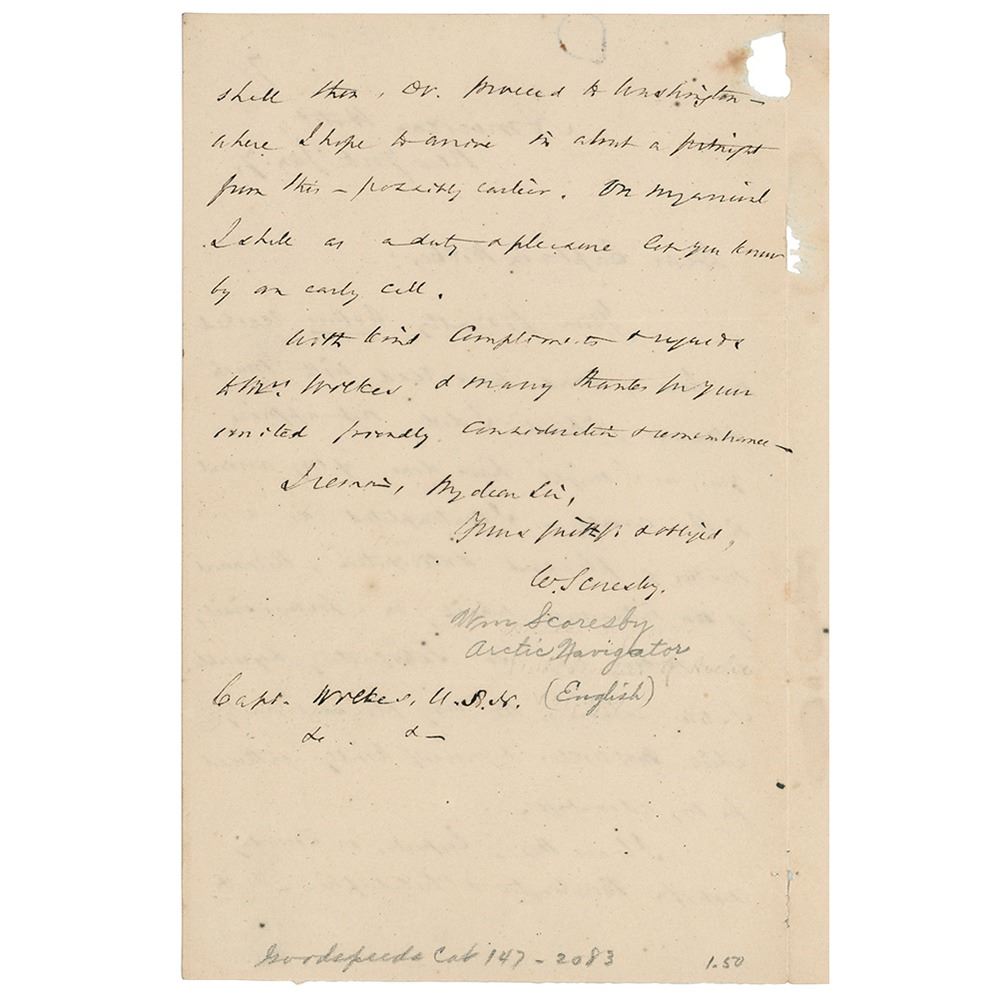 shall then, D.V. proceed to Washington –
where I hope to arrive in about a fortnight
from this – possibly earlier. On my arrival
I shall as a duty & pleasure let you know
by an early call.
With kind Compliments & regards
to Mrs Wilkes & many thanks for your
united friendly consideration & remembrance –
I remain, My dear Sir,
Yours faithfy. & obliged,
W. Scoresby.
Wm Scoresby
Arctic Navigator
(English)
Capt. Wilkes, U.S.N.
&c. &c –
Goodspeeds Cat 147 – 2083
1.50